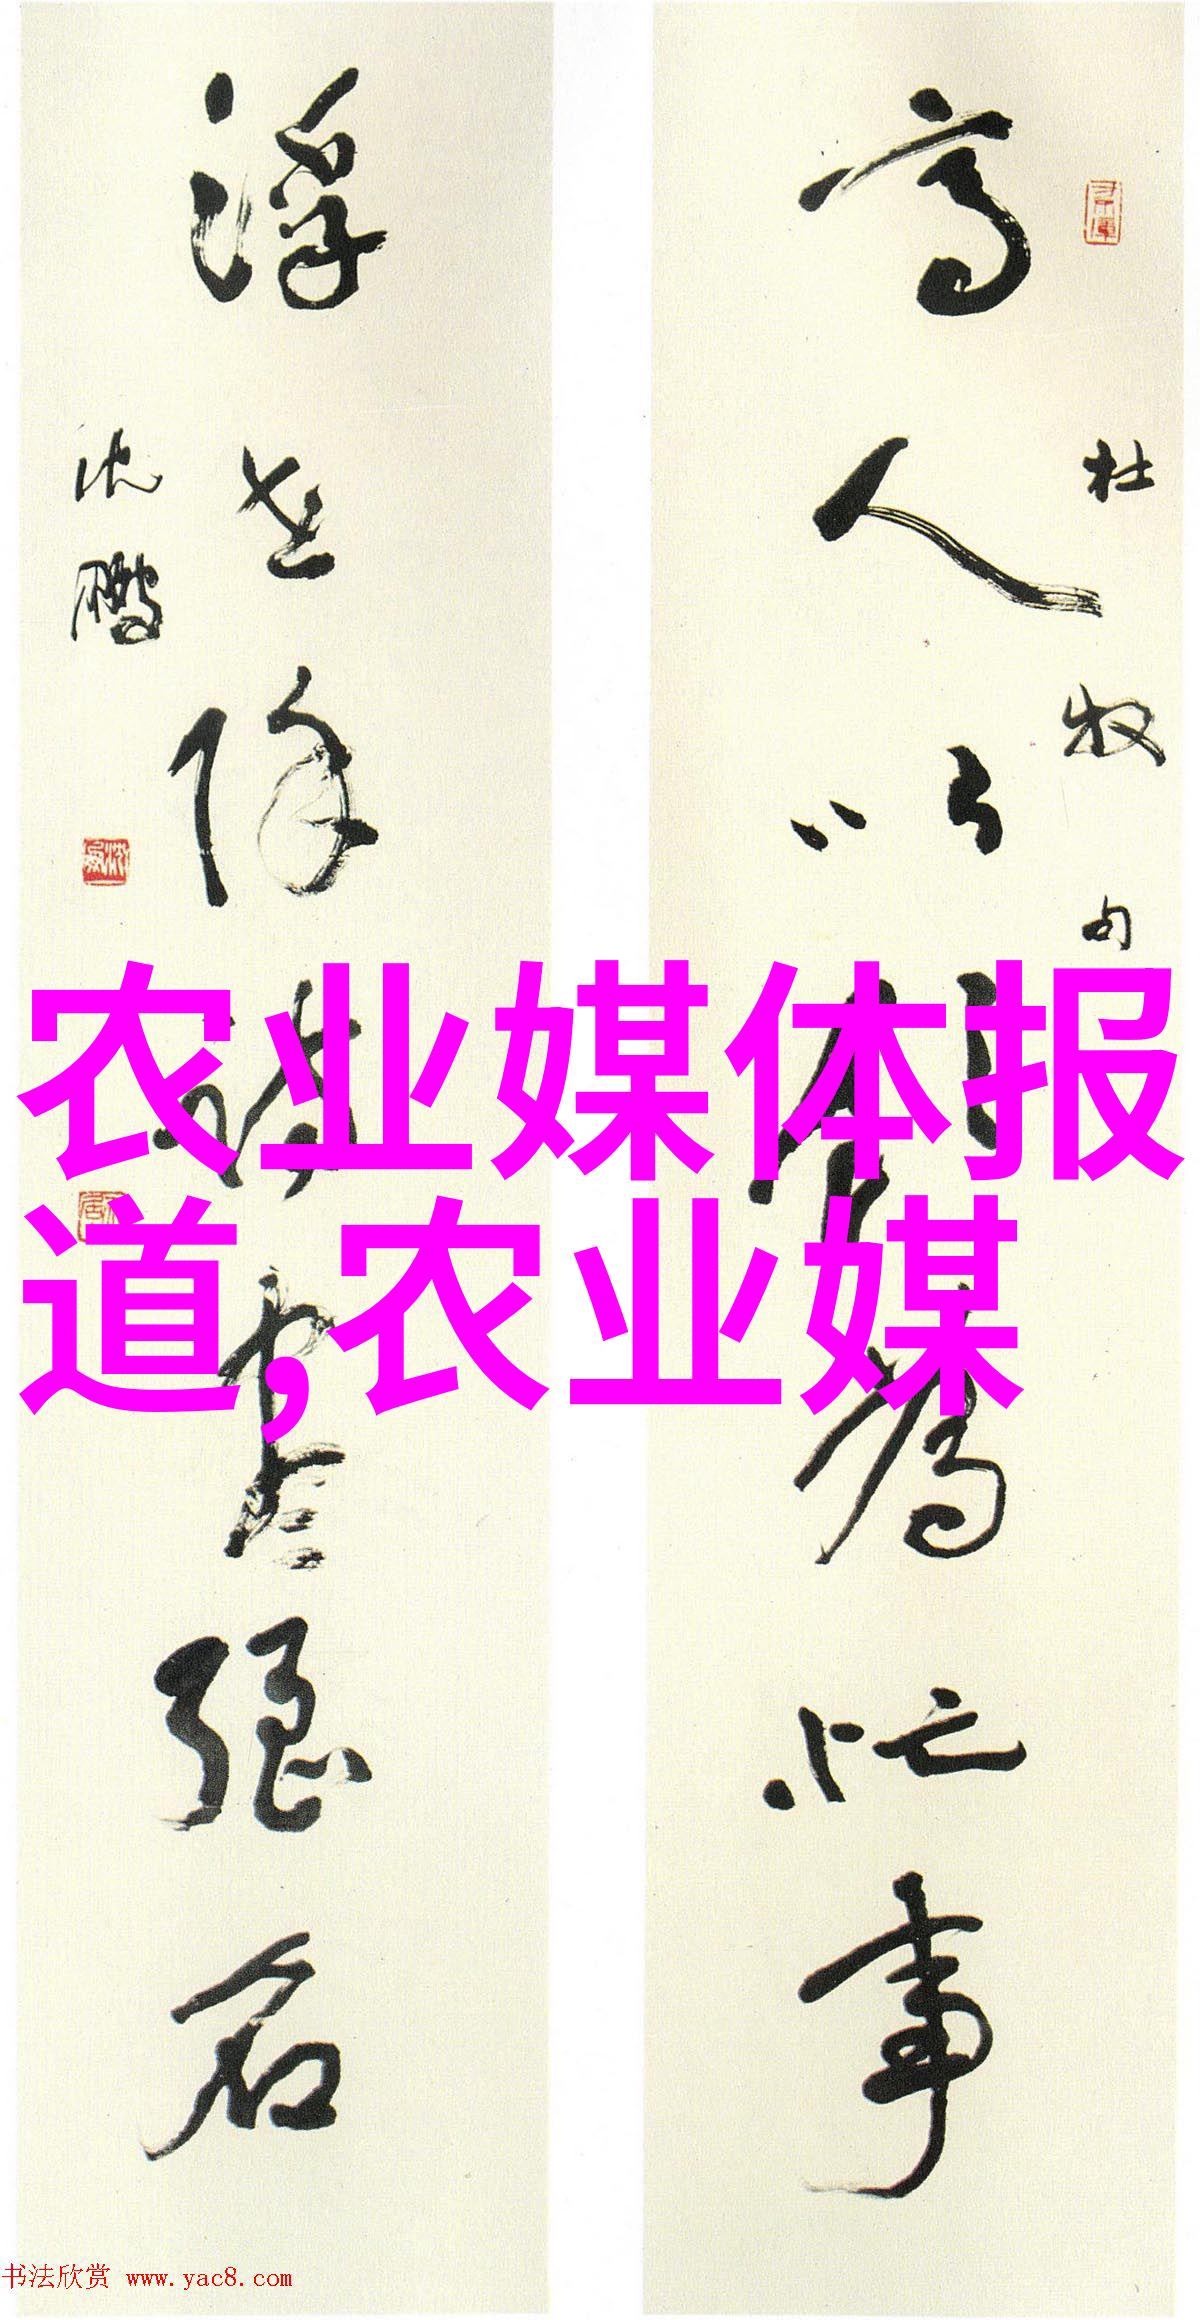 高人以為忙事
杜牧句
浮世除詩盡强名
沈鹏
农业媒体报
道,农业媒
书法欣赏 www.yac8.com